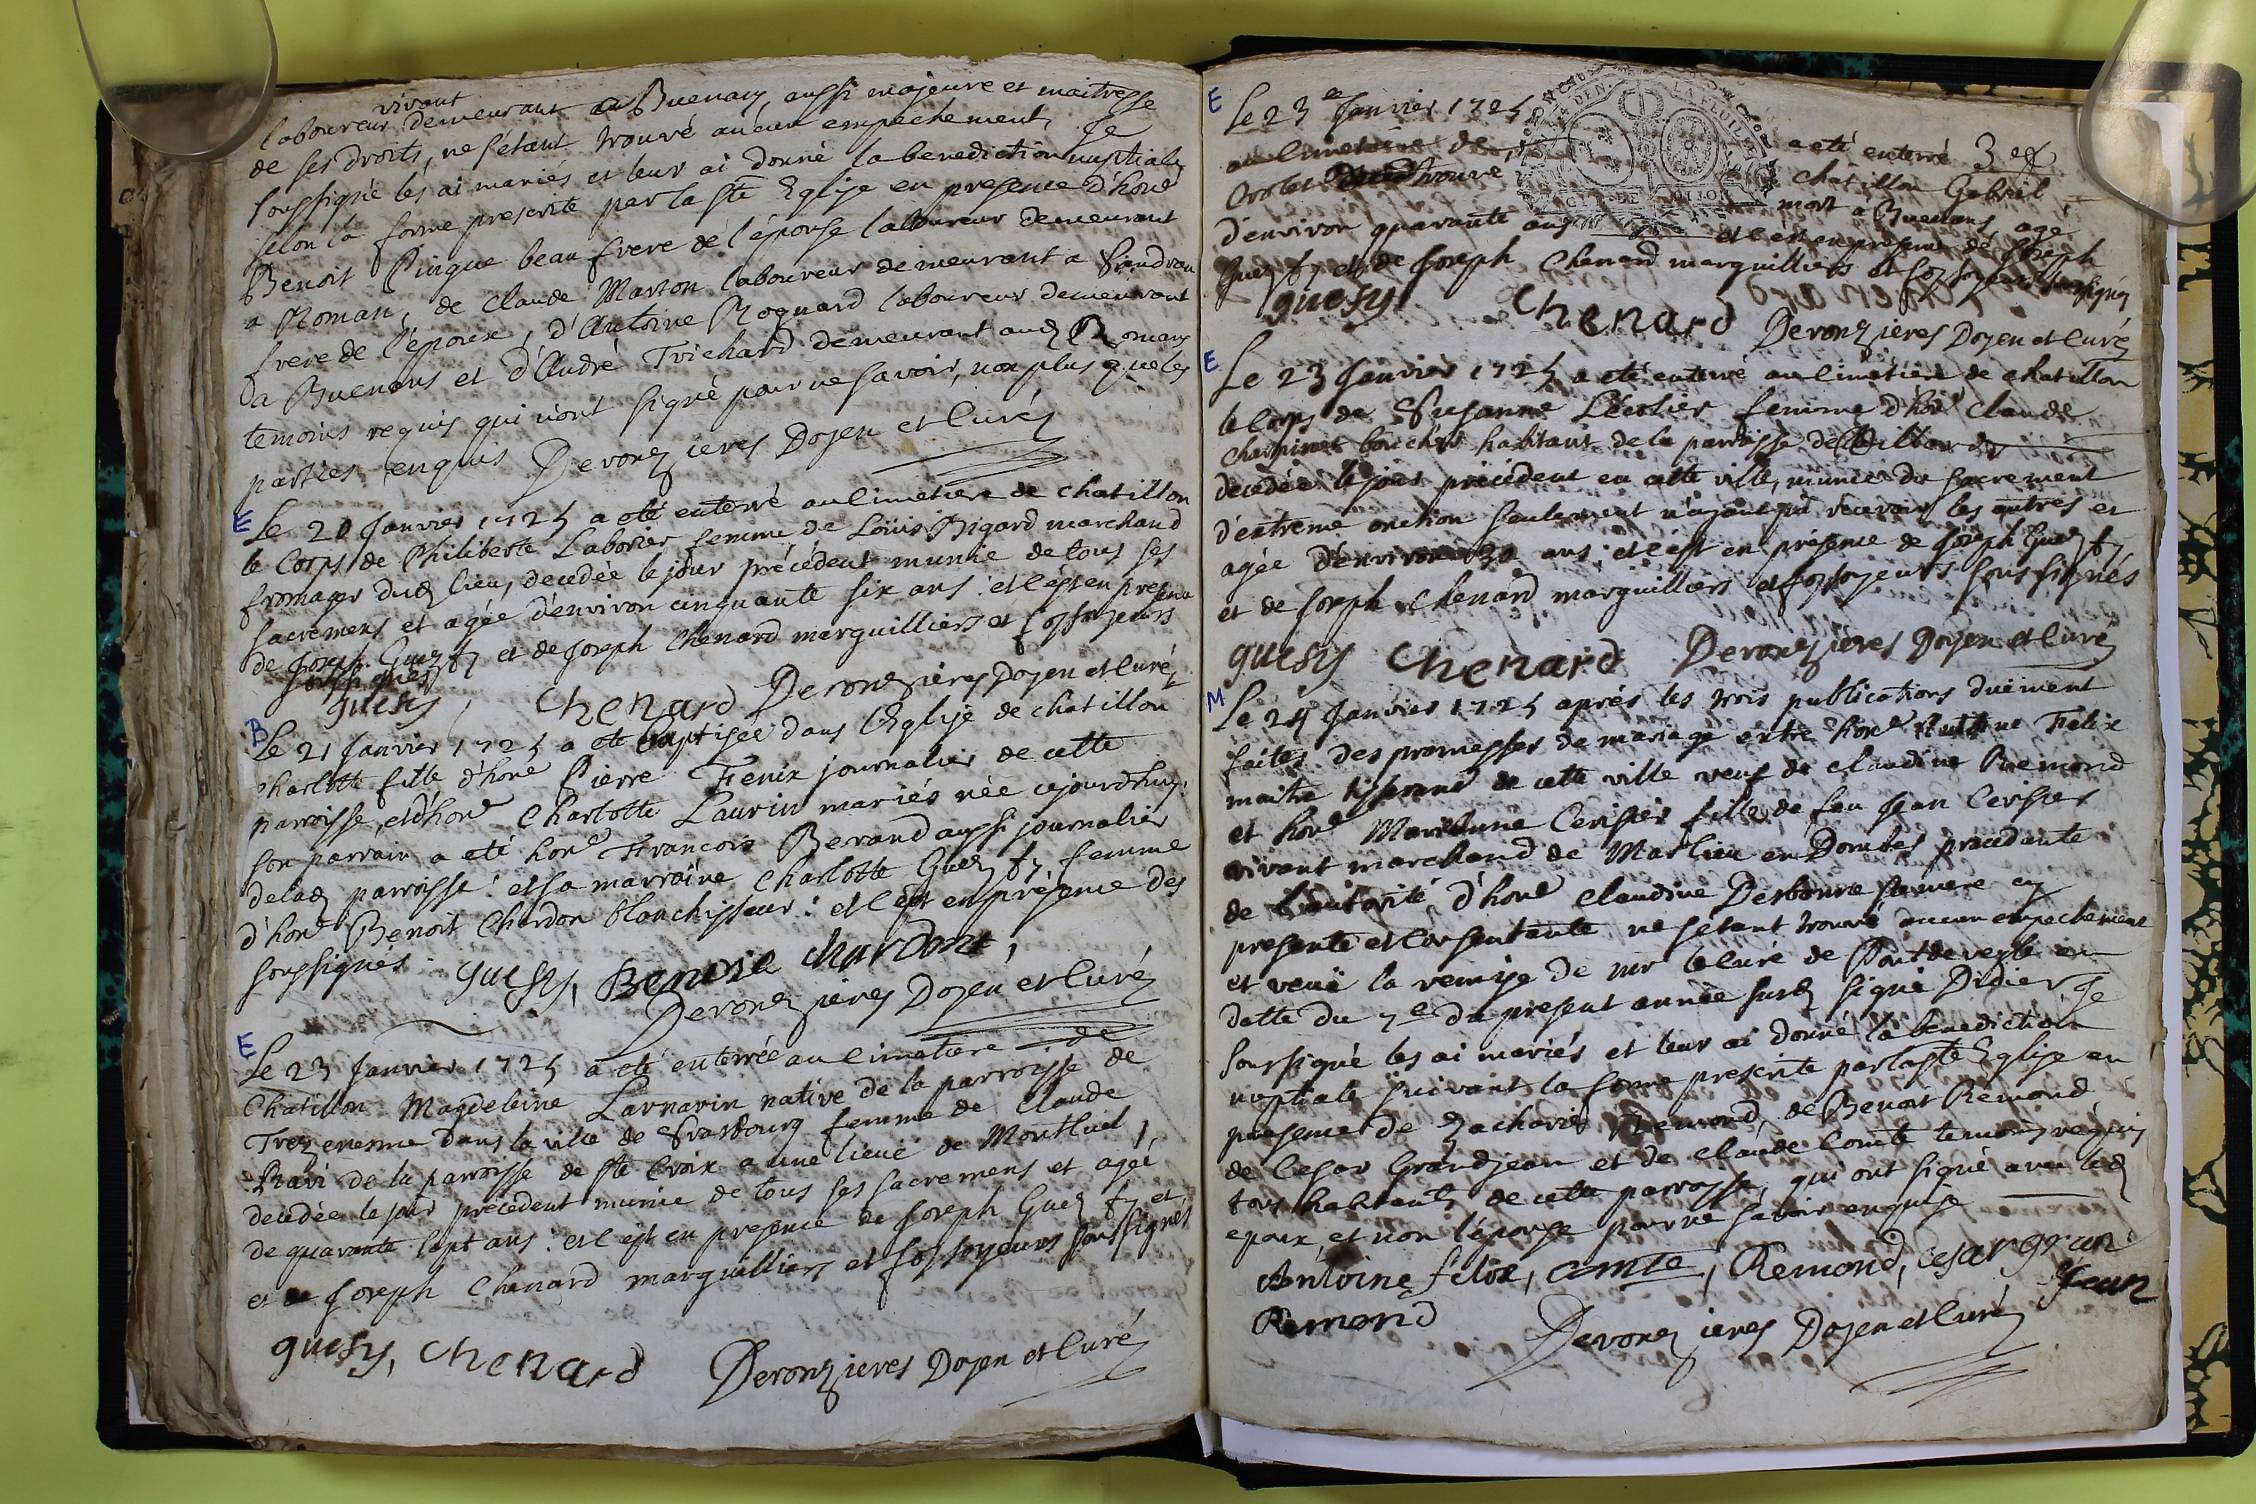 vivant
laboureur demeurant a Buenans, aussi majeure et maitresse
de ses droits, ne s'étant trouvé aucun empechement, Je
soussigné les ai mariés et leur ai donné la benediction nuptiale
selon la forme prescrite par la Ste Eglise en presence d'honé
Benoit Pingue beau frere de l'épouse laboureur demeurant
a Roman, de Claude Marion laboureur demeurant a
frere de l'époux, d'Antoine Roguard laboureur demeurant
a Buenans et d'André Trichard demeurant aud Romans
temoins requis qui n'ont signé pour ne savoir, non plus que les
parties enquis Deronzieres Doyen et Curé
E Le 20 Janvier 1725 a eté enterré au Cimetiere de Chatillon
le Corps de Philiberte Laborier femme de Loüis Bigard marchand
fromager dud lieu, decedée le jour précédent munie de tous ses
sacremens et agée d'environ cinquante six ans : et c'est en presence
de Joseph Guezy et de Joseph Chenard marguilliers et fossoyeurs
soussignés
guesy, Chenard Deronzieres Doyen et Curé
B Le 21 Janvier 1725 a eté baptisée dans l'Eglise de chatillon
Charlotte fille d'honé Pierre Fenix journalier de cette
parroisse, et d'honé Charlotte Laurin mariés née cejourdhuy,
son parrain a eté honé Francois Berand aussi journalier
de lad parroisse : et sa marraine Charlotte Guezy femme
d'honé Benoit Chardon blanchisseur : et c'est en présence des
soussignés. guesy, Benoit chardont,
Deronzieres Doyen et Curé
E Le 23 Janvier 1725 a eté enterrée au Cimetiere de
Chatillon Magdeleine Larnarin native de la parroisse de
dans la ville de Strasbourg femme de Claude
Ravi de la parroisse de Ste Croix a une lieuë de Montluel,
decedée le jour précédent munie de tous ses sacremens et agée
de quarante sept ans : et c'est en presence de Joseph Guezy et
et de Joseph Chenard marguilliers et fossoyeurs soussignés
guesy, Chenard Deronzieres Doyen et Curé
E Le 23e Janvier 1725 a eté enterré
au Cimetiere de chatillon Gabriel
trouvé mort a Buenans, agé
d'environ quarante ans et c'est en presence de Joseph
Guezy et de Joseph Chenard marguilliers et fossoyeurs soussignés
guesy Chenard Deronzieres Doyen et Curé
E Le 23 Janvier 1725 a eté enterré au Cimetiere de chatillon
le Corps de Susanne Lécolier femme d'honé Claude
Charpinet boucher habitant de la parroisse de
decedée le jour précédent en cette ville, munie du sacrement
d'extreme onction seulement n'ayant pû recevoir les autres et
agée d'environ 30 ans : et c'est en présence de Joseph Guezy
et de Joseph Chenard marguilliers et fossoyeurs soussignés
guesy Chenard Deronzieres Doyen et Curé
M Le 24 Janvier 1725 aprés les trois publications duëment
faites des promesses de mariage entre honé Antoine Felix
maitre tisserand de cette ville veuf de Claudine Remond
et honé Marianne Cerisier fille de feu Jean Cerisier
vivant marchand de Marlieu en Dombes procedante
de l'autorité d'honé Claudine Desbonne sa mere cy
presente et consentante ne s'étant trouvé aucun empechement
et veuë la remise de mr le curé de Pontdevesle en
datte du 7e du present année susd signé Didier Je
soussigné les ai mariés et leur ai donné la benediction
nuptiale suivant la forme prescrite par la Ste Eglise en
presence de Zacharie Remond, de Benoit Remond
de Cesar Grandjean et de Claude Comte temoins requis
tous habitants de cette parroisse, qui ont signé avec led
epoux et non l'épouse pour ne savoir enquise
Antoine félix, comte, Remond, cesar gran
Jean
Remond
Deronzieres Doyen et Curé